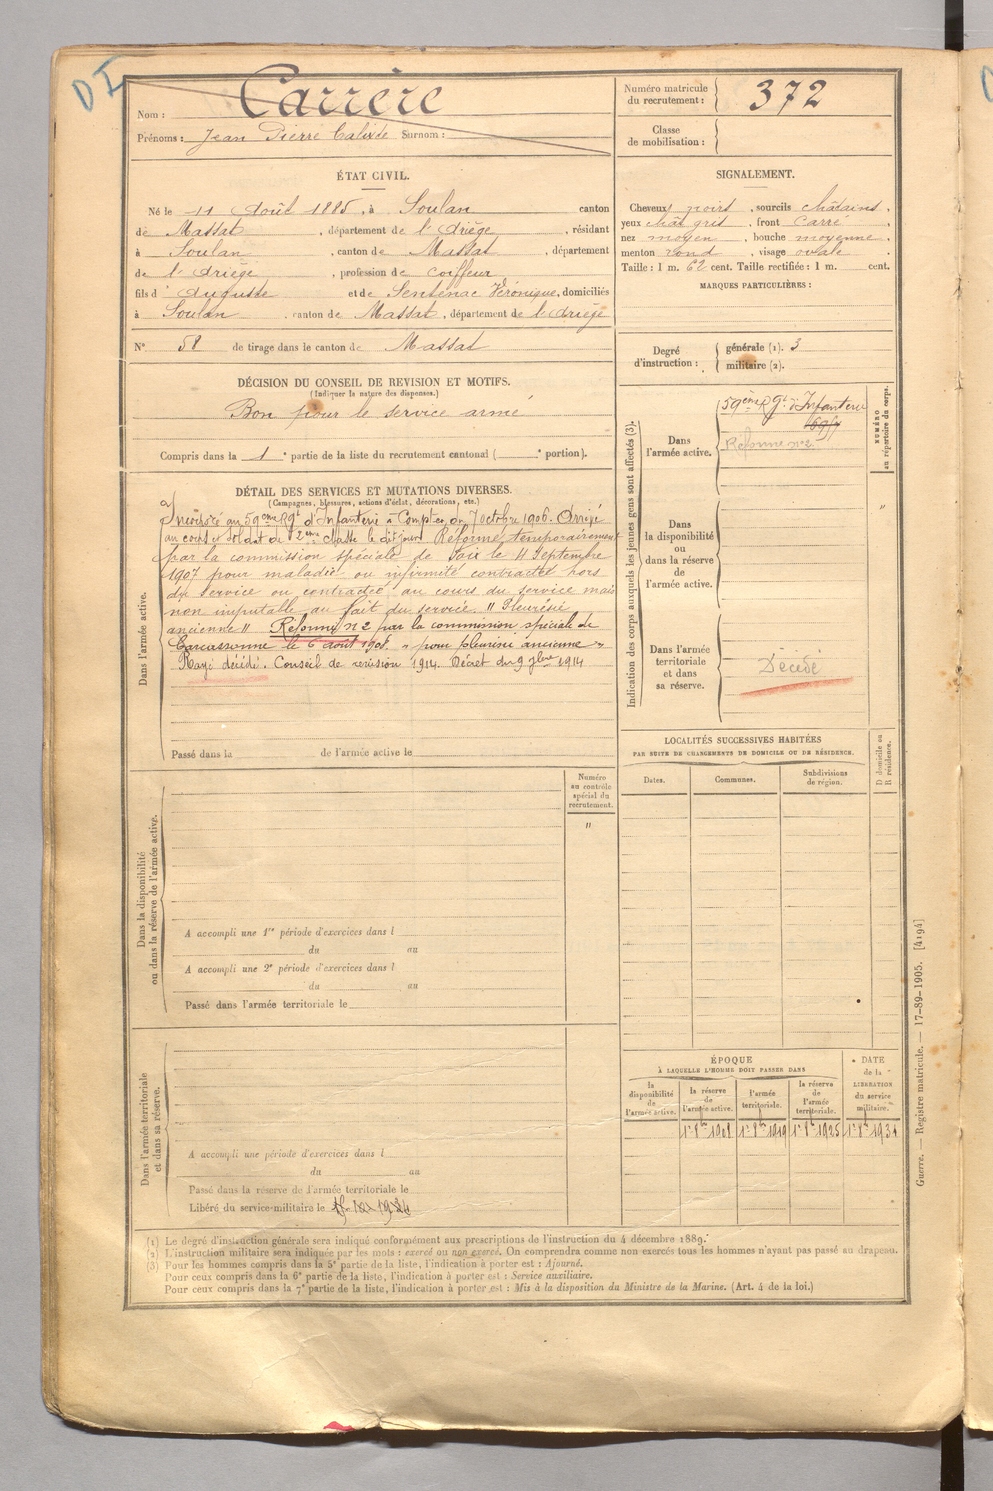 D I
Nom : Carrère
Prénoms : Jean Pierre Calixte Surnom :
Numéro matricule du recrutement : 372
Classe de mobilisation :
ÉTAT CIVIL.
Né le 11 Août 1885, à Soulan canton
de Massat, département de l'Ariège, résidant
à Soulan, canton de Massat, département
de l'Ariège, profession de coiffeur
fils d'Auguste et de Sentenac Véronique, domiciliés
à Soulan, canton de Massat, département de l'Ariège
N° 58 de tirage dans le canton de Massat
SIGNALEMENT.
Cheveux noirs, sourcils châtains,
yeux chât gris, front carré,
nez moyen, bouche moyenne,
menton rond, visage ovale.
Taille : 1 m. 62 cent. Taille rectifiée : 1 m. cent.
MARQUES PARTICULIÈRES :
Degré d'instruction : générale (1). 3
militaire (2).
DÉCISION DU CONSEIL DE REVISION ET MOTIFS.
(Indiquer la nature des dispenses.)
Bon pour le service armé
Compris dans la 1e partie de la liste du recrutement cantonal ( e portion).
DÉTAIL DES SERVICES ET MUTATIONS DIVERSES.
(Campagnes, blessures, actions d'éclat, décorations, etc.)
Dans l'armée active.
Incorporé au 59eme Rgt d'Infanterie à Compter du 7 octobre 1906. Arrivé
au corps et soldat de 2eme classe le dit jour. Réformé temporairement
par la commission spéciale de Foix le 11 Septembre
1907 pour maladie ou infirmité contractée hors
du service ou contractée au cours du service mais
non imputable au fait du service. "Pleurésie
ancienne" Réformé n° 2 par la commission spéciale de
Carcassonne le 6 août 1908. "pour pleurésie ancienne"
Rayé décédé. Conseil de revision 1914. Décret du 9 7bre 1914
Passé dans la de l'armée active le
Indication des corps auxquels les jeunes gens sont affectés (3).
NUMÉRO au répertoire du corps.
Dans l'armée active.
59eme Rgt d'Infanterie
Réforme n° 2
Dans la disponibilité ou dans la réserve de l'armée active.
"
Dans l'armée territoriale et dans sa réserve.
Décédé
LOCALITÉS SUCCESSIVES HABITÉES
PAR SUITE DE CHANGEMENTS DE DOMICILE OU DE RÉSIDENCE.
Dates. Communes. Subdivisions de région. D domicile ou R résidence.
Dans la disponibilité ou dans la réserve de l'armée active.
Numéro au contrôle spécial du recrutement.
"
A accompli une 1re période d'exercices dans l
du au
A accompli une 2e période d'exercices dans l
du au
Passé dans l'armée territoriale le
Dans l'armée territoriale et dans sa réserve.
A accompli une période d'exercices dans l
du au
Passé dans la réserve de l'armée territoriale le
Libéré du service militaire le
ÉPOQUE
À LAQUELLE L'HOMME DOIT PASSER DANS
DATE de la LIBÉRATION du service militaire.
la disponibilité de l'armée active. la réserve de l'armée active. l'armée territoriale. la réserve de l'armée territoriale.
1er 8bre 1908 1er 8bre 1919 1er 8bre 1925 1er 8bre 1931
(1) Le degré d'instruction générale sera indiqué conformément aux prescriptions de l'instruction du 4 décembre 1889.
(2) L'instruction militaire sera indiquée par les mots : exercé ou non exercé. On comprendra comme non exercés tous les hommes n'ayant pas passé au drapeau.
(3) Pour les hommes compris dans la 5e partie de la liste, l'indication à porter est : Ajourné.
Pour ceux compris dans la 6e partie de la liste, l'indication à porter est : Service auxiliaire.
Pour ceux compris dans la 7e partie de la liste, l'indication à porter est : Mis à la disposition du Ministre de la Marine. (Art. 4 de la loi.)
Guerre. — Registre matricule. — 17-89-1905. [4194]